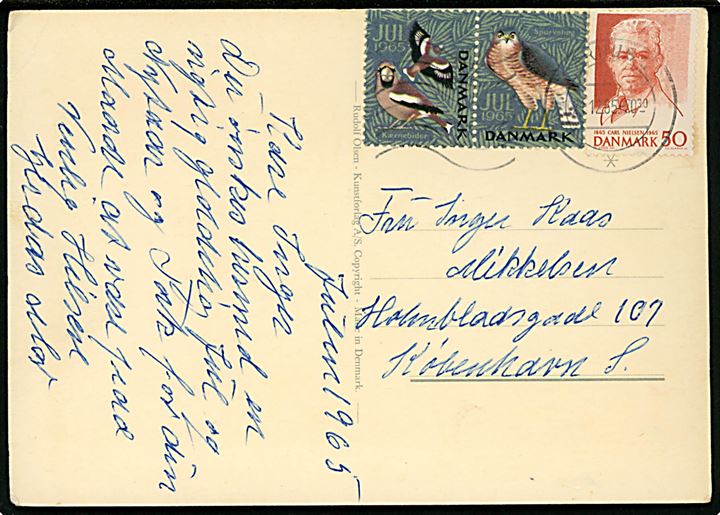 JUL
1965
Kærnebider
DANMARK
Spurvehøg
JUL
1965
DANMARK
1865 CARL NIELSEN 1965
DANMARK 50
Rudolf Olsen - Kunstforlag A/S. Copyright - Made in Denmark.
Julen 1965
Kære Inger
Du ønskes hermed en
rigtig glædelig Jul og
Nytaar og Tak for din
Hilsen
Fru Inger Kaas
Mikkelsen
Holmbladsgade 107
København S.